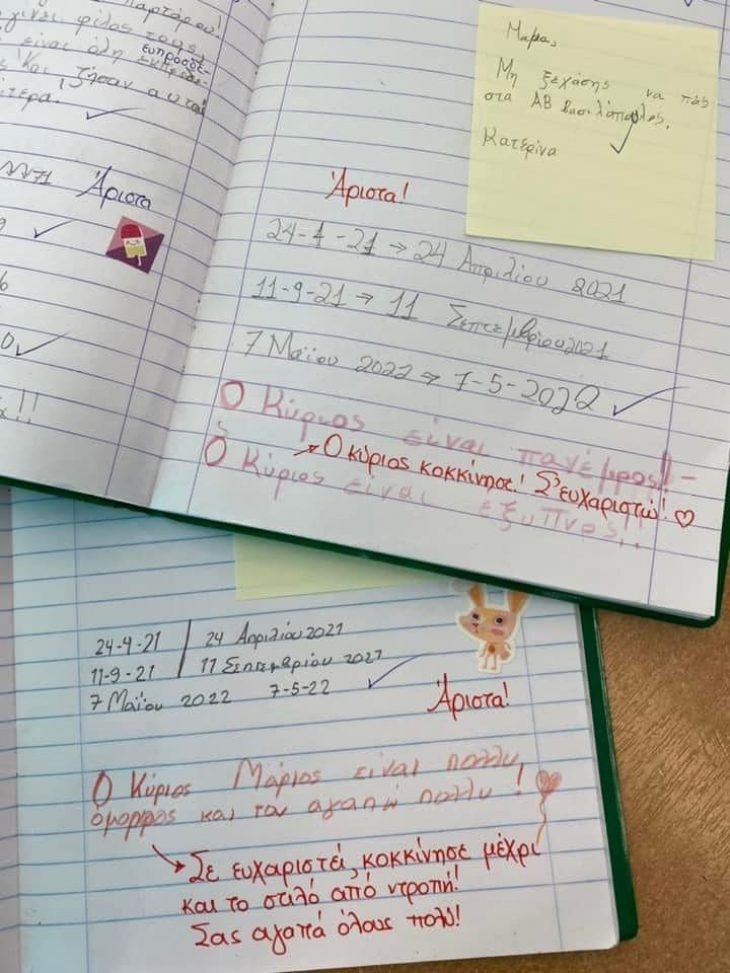 παρτάρου!
γίνει φίλος τους,
είναι όλη ευπρόσδε-
και ζήσαν αυτοί
Άριστα
Μαμα,
Μη ξεχάσης να πας
στα ΑΒ Βασιλόπουλος.
Κατερίνα
Άριστα!
24-4-21 → 24 Απριλίου 2021
11-9-21 → 11 Σεπτεμβρίου 2021
7 Μαΐου 2022 → 7-5-2022
Ο Κύριος είναι πανέμρος!!
Ο κύριος κοκκίνησε! Σ'ευχαριστώ! ♡
Ο Κύριος είναι εξυπνος!!
24-4-21 | 24 Απριλίου 2021
11-9-21 | 11 Σεπτεμβρίου 2021
7 Μαΐου 2022 7-5-22
Άριστα!
Ο Κύριος Μάριος είναι πολλυ
όμορρος και τον αγαπώ πολλυ !
Σε ευχαριστεί, κοκκίνησε μέχρι
και το στιλό από ντροπή!
Σας αγαπά όλους πολύ!